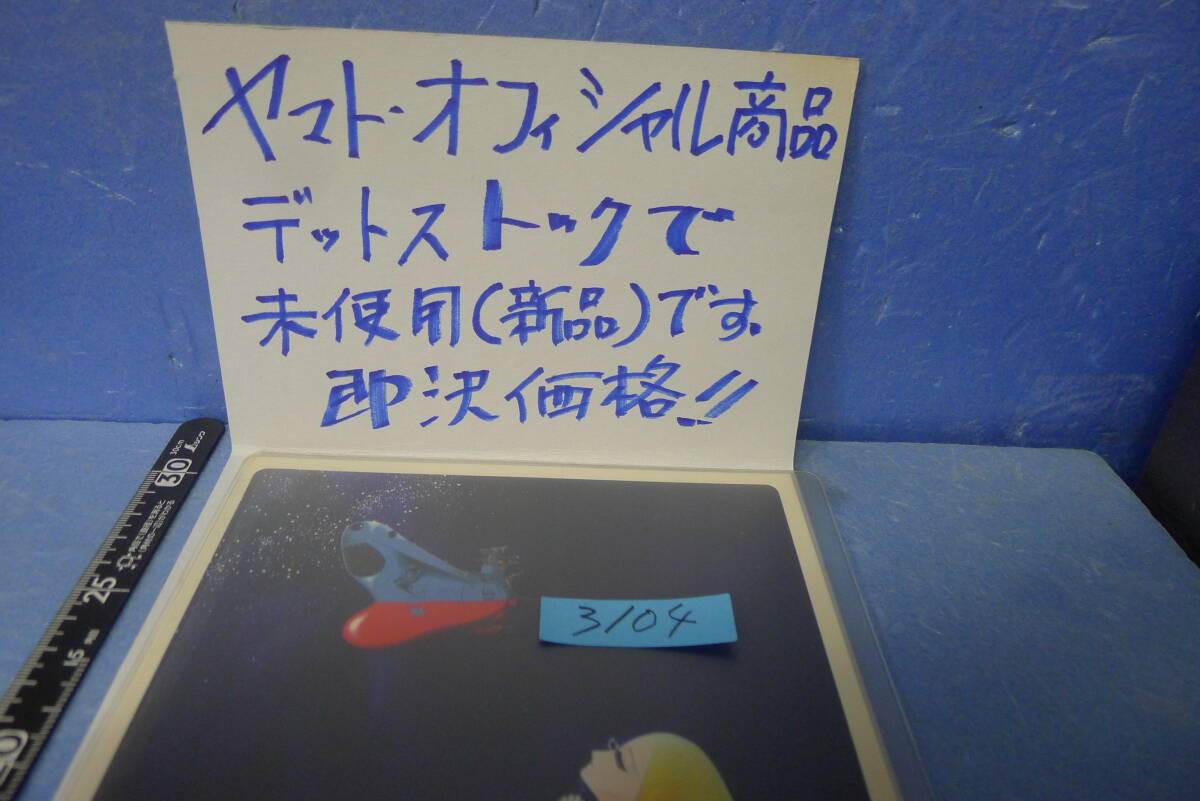 ヤマト・オフィシャル商品
デットストックで
未使用(新品)です。
即決価格!!
3104
30cm
30
25
15
20